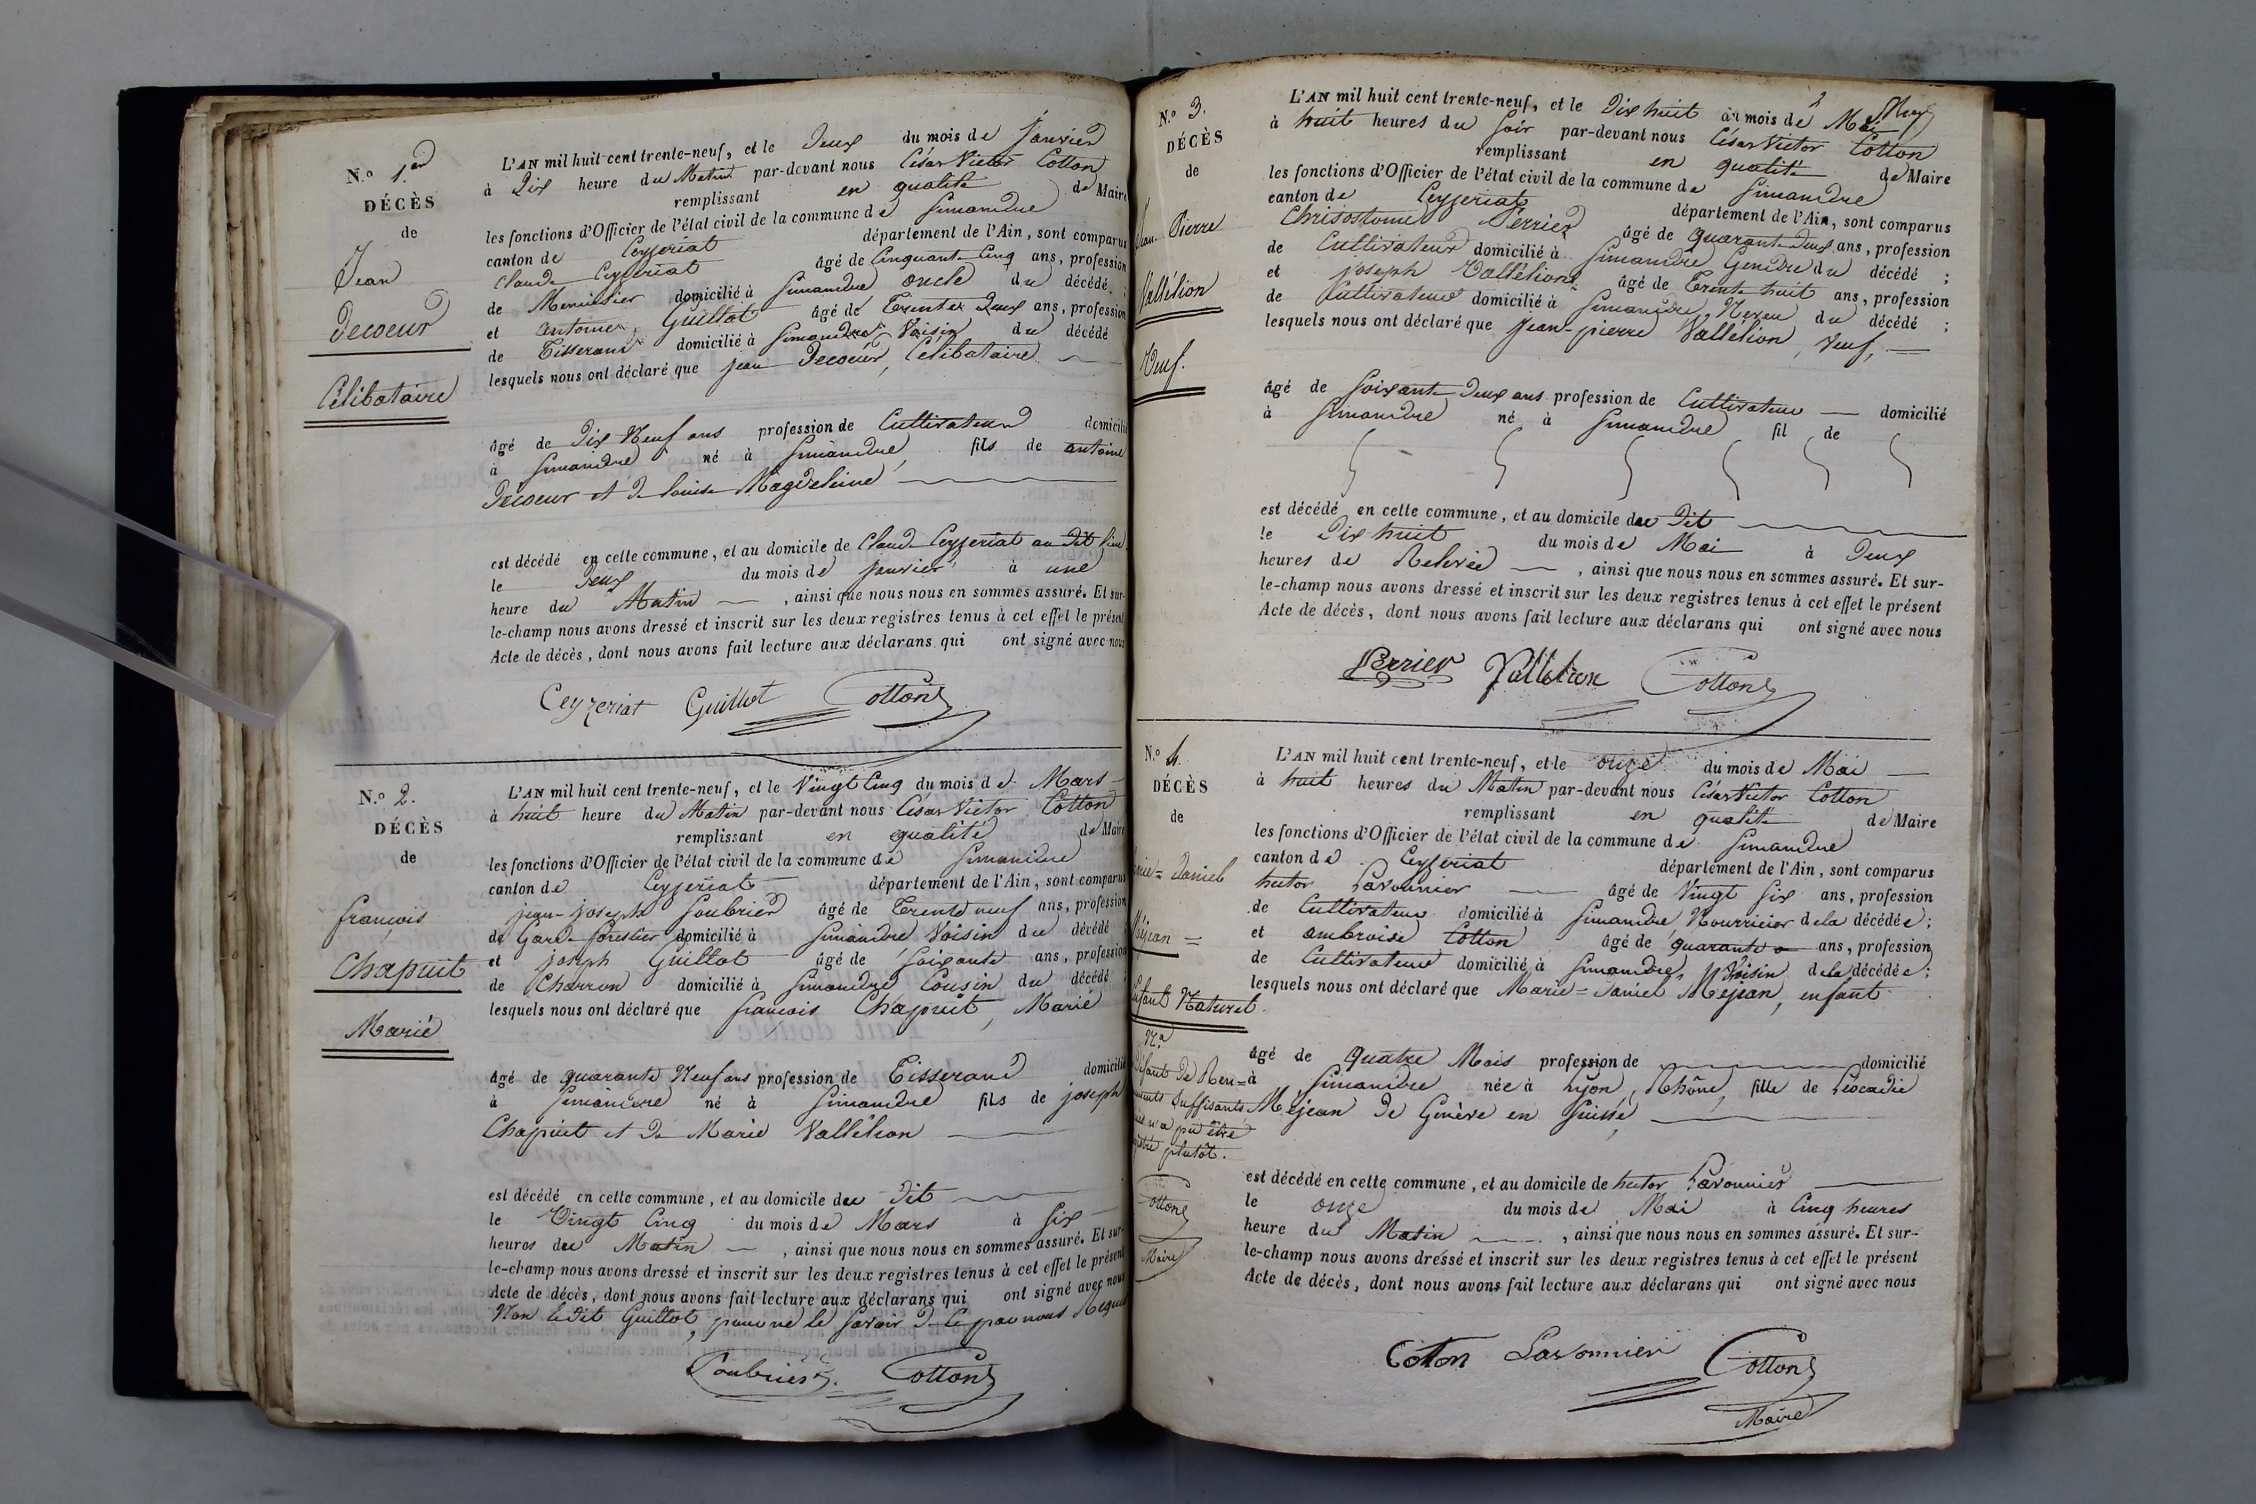 N.º 1.er
DÉCÈS
de
Jean
Decoeur
Célibataire
L'AN mil huit cent trente-neuf, et le Deux du mois de Janvier
à Dix heure du Matin par-devant nous César Victor Cotton
remplissant en qualité de Maire
les fonctions d'Officier de l'état civil de la commune de Simandre
canton de Ceyzeriat département de l'Ain, sont comparus
Claude Ceyzeriat âgé de Cinquante Cinq ans, profession
de Menuisier domicilié à Simandre oncle du décédé ;
et antoine Guillot âgé de Trente Deux ans, profession
de Tisserand domicilié à Simandre Voisin du décédé
lesquels nous ont déclaré que jean Decoeur, Célibataire
âgé de Dix Neuf ans profession de Cultivateur domicilié
à Simandre né à Simandre, fils de antoine
Decoeur et de louise Magdeleine
est décédé en cette commune, et au domicile de Claude Ceyzeriat au dit lieu
le Deux du mois de Janvier à une
heure du Matin , ainsi que nous nous en sommes assuré. Et sur-
le-champ nous avons dressé et inscrit sur les deux registres tenus à cet effet le présent
Acte de décès, dont nous avons fait lecture aux déclarans qui ont signé avec nous
Ceyzeriat Guillot Cotton
N.º 2.
DÉCÈS
de
françois
Chapuit
Marié
L'AN mil huit cent trente-neuf, et le Vingt Cinq du mois de Mars
à huit heure du Matin par-devant nous César Victor Cotton
remplissant en qualité de Maire
les fonctions d'Officier de l'état civil de la commune de Simandre
canton de Ceyzeriat département de l'Ain, sont comparus
jean-joseph Soubrier âgé de Trente neuf ans, profession
de Garde forestier domicilié à Simandre Voisin du décédé
et joseph Guillot âgé de Soixante ans, profession
de Charron domicilié à Simandre Cousin du décédé ;
lesquels nous ont déclaré que françois Chapuit, Marié
âgé de quarante Neuf ans profession de Tisserand domicilié
à Simandre né à Simandre fils de joseph
Chapuit et de Marie Vallélion
est décédé en cette commune, et au domicile du Dit
le Vingt Cinq du mois de Mars à Six
heures du Matin , ainsi que nous nous en sommes assuré. Et sur-
le-champ nous avons dressé et inscrit sur les deux registres tenus à cet effet le présent
Acte de décès, dont nous avons fait lecture aux déclarans qui ont signé avec nous
Non ledit Guillot, pour ne le Savoir de Ce par nous Requis
Soubrier Cotton
N.º 3.
DÉCÈS
de
Jean Pierre
Vallélion
Veuf.
L'AN mil huit cent trente-neuf, et le Dix huit du mois de Mai
à huit heures du Soir par-devant nous César Victor Cotton
remplissant en qualité de Maire
les fonctions d'Officier de l'état civil de la commune de Simandre
canton de Ceyzeriat département de l'Ain, sont comparus
Chrisostome Perrier âgé de quarante Deux ans, profession
de Cultivateur domicilié à Simandre Gendre du décédé ;
et joseph Vallélion âgé de Trente huit ans, profession
de Cultivateur domicilié à Simandre, Neveu du décédé ;
lesquels nous ont déclaré que jean-pierre Vallélion, Veuf,
âgé de Soixante Deux ans profession de Cultivateur domicilié
à Simandre né à Simandre fil de
est décédé en cette commune, et au domicile du Dit
le Dix huit du mois de Mai à Deux
heures de Relevée , ainsi que nous nous en sommes assuré. Et sur-
le-champ nous avons dressé et inscrit sur les deux registres tenus à cet effet le présent
Acte de décès, dont nous avons fait lecture aux déclarans qui ont signé avec nous
Perrier Vallelion Cotton
N.º 4.
DÉCÈS
de
Marie=Daniel
Méjean=
enfant Naturel.
Défaut de Ren=
suffisants
n'a pu être
plutôt.
Cotton
Maire
L'AN mil huit cent trente-neuf, et le onze du mois de Mai
à huit heures du Matin par-devant nous César Victor Cotton
remplissant en qualité de Maire
les fonctions d'Officier de l'état civil de la commune de Simandre
canton de Ceyzeriat département de l'Ain, sont comparus
hector Lavonnier âgé de Vingt Six ans, profession
de Cultivateur domicilié à Simandre, Nourricier de la décédée ;
et ambroise Cotton âgé de quarante ans, profession
de Cultivateur domicilié à Simandre, Voisin de la décédée ;
lesquels nous ont déclaré que Marie=Daniel Méjean, enfant
âgé de quatre Mois profession de domicilié
à Simandre née à Lyon, Rhône, fille de Léocadie
Méjean de Genève en Suisse,
est décédé en cette commune, et au domicile de hector Lavonnier
le onze du mois de Mai à Cinq heures
heure du Matin , ainsi que nous nous en sommes assuré. Et sur-
le-champ nous avons dressé et inscrit sur les deux registres tenus à cet effet le présent
Acte de décès, dont nous avons fait lecture aux déclarans qui ont signé avec nous
Coton Lavonnier Cotton
Maire